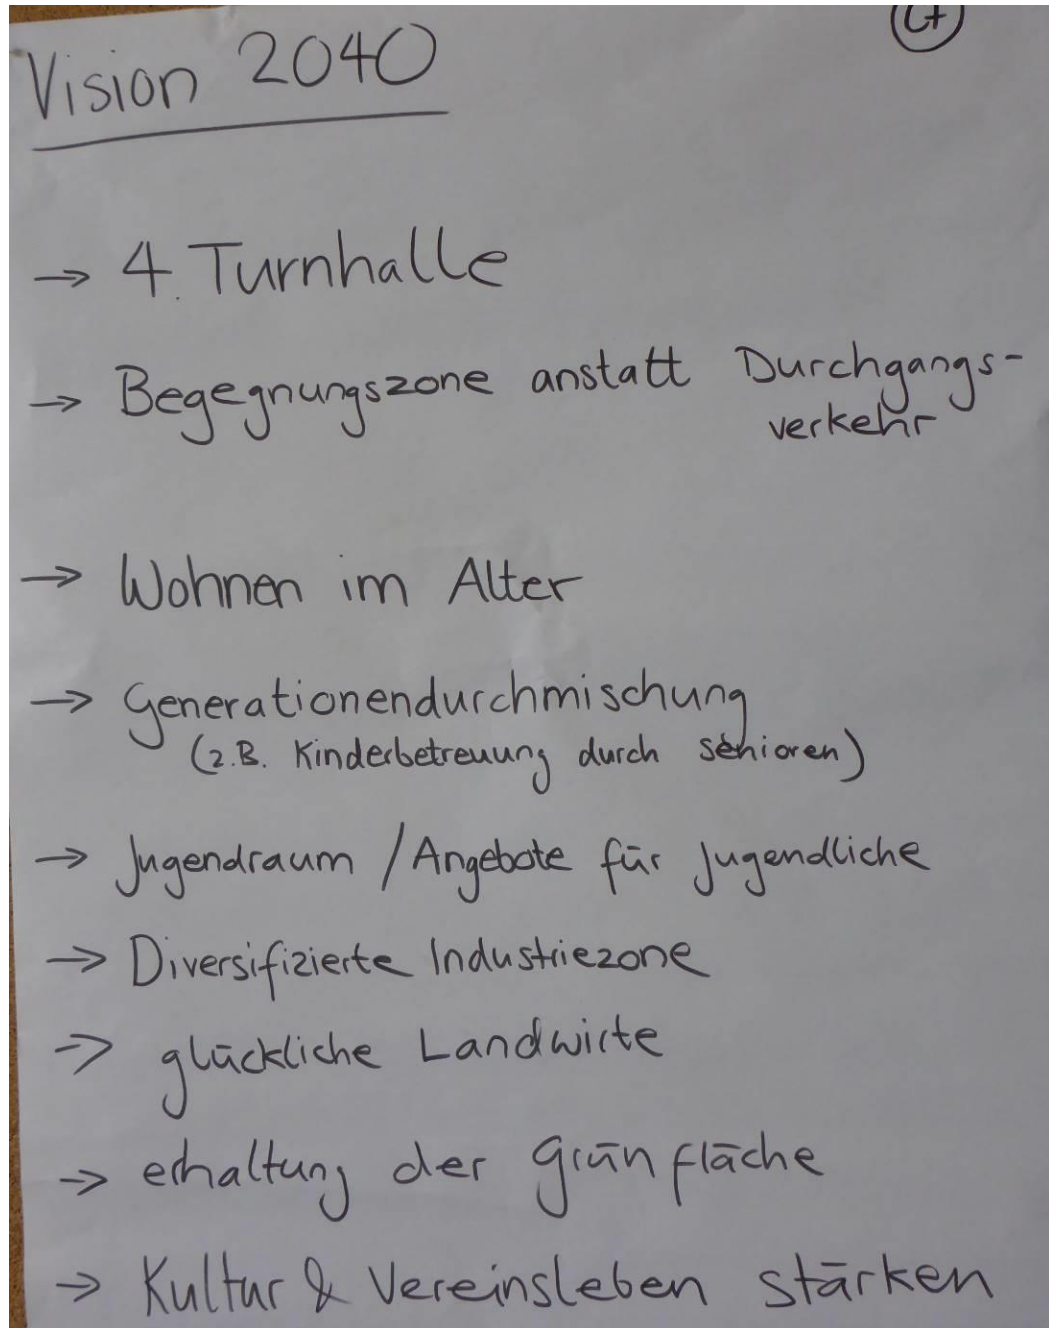 Vision 2040
→ 4. Turnhalle
→ Begegnungszone anstatt Durchgangs-
verkehr
→ Wohnen im Alter
→ Generationendurchmischung
(z.B. Kinderbetreuung durch senioren)
→ Jugendraum / Angebote für Jugendliche
→ Diversifizierte Industriezone
→ glückliche Landwirte
→ erhaltung der Grünfläche
→ Kultur & Vereinsleben stärken